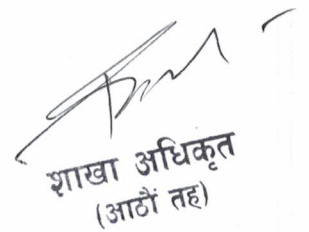 शाखा अधिकृत
(आठौं तह)